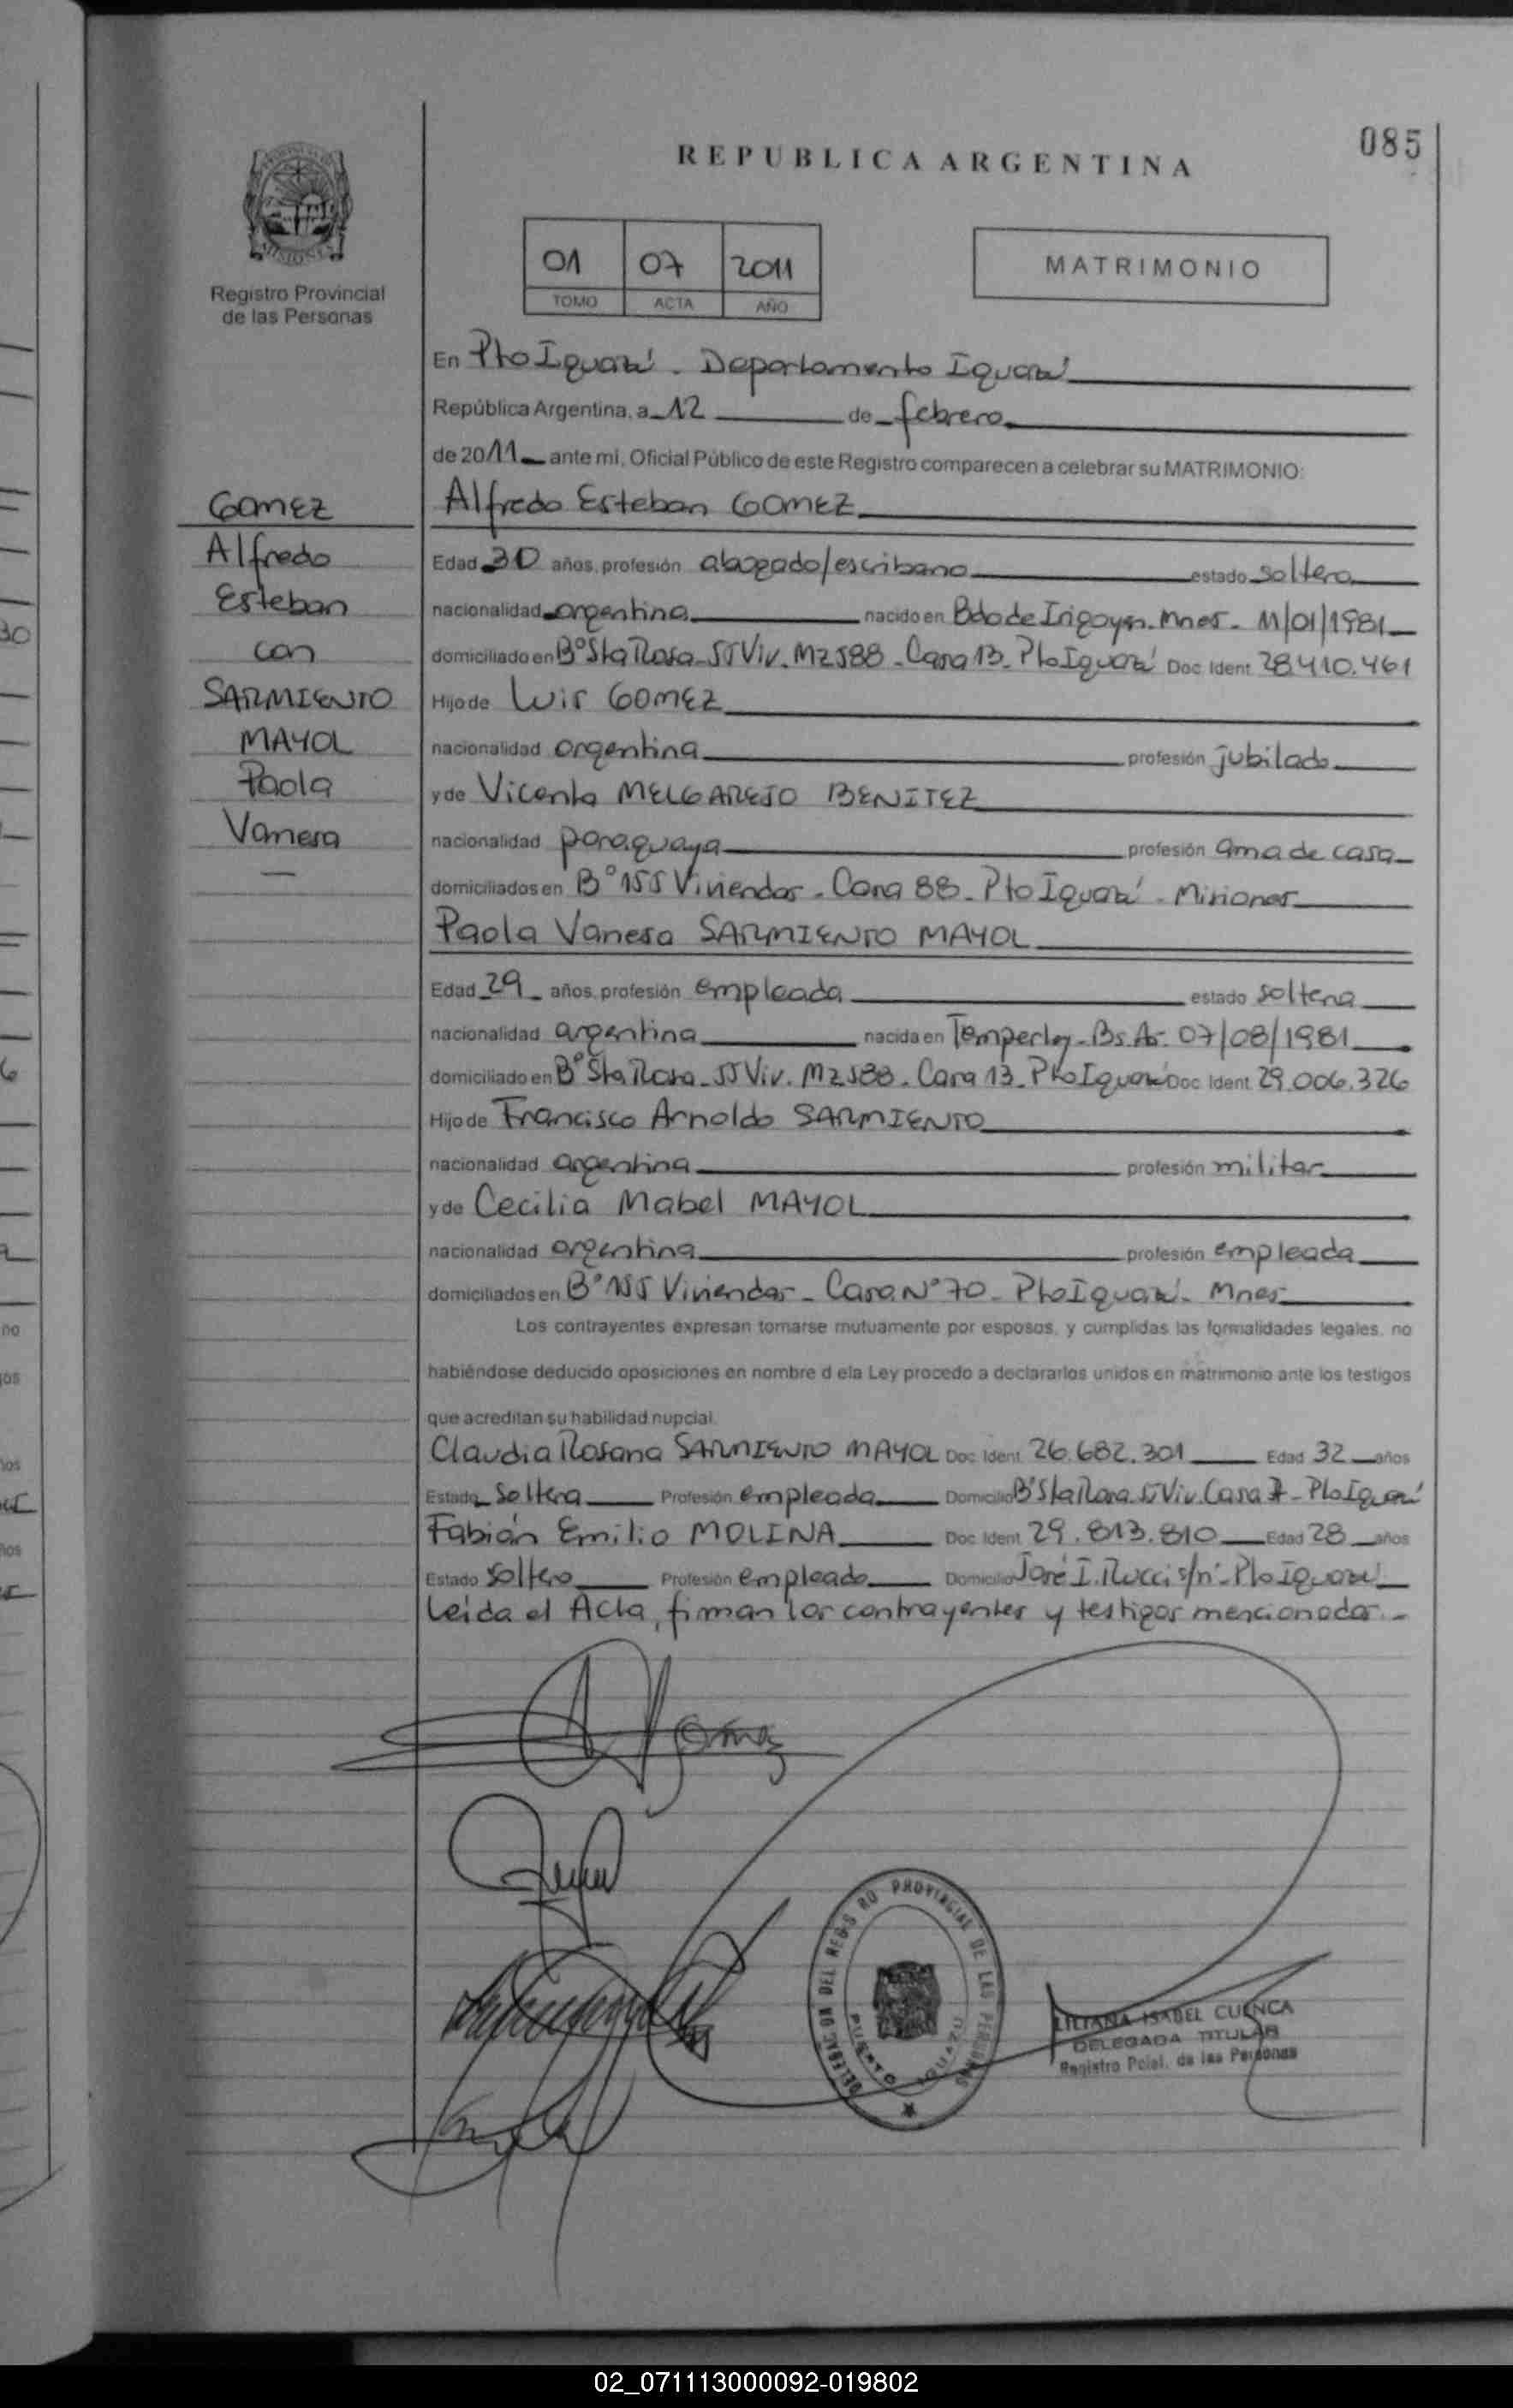 085
REPUBLICA ARGENTINA
MISIONES
Registro Provincial
de las Personas
01 07 2011
TOMO ACTA AÑO
MATRIMONIO
En Pto Iguazú - Departamento Iguazú
República Argentina, a 12 de febrero
de 2011 ante mi, Oficial Público de este Registro comparecen a celebrar su MATRIMONIO:
GOMEZ
Alfredo
Esteban
con
SARMIENTO
MAYOL
Paola
Vanesa
Alfredo Esteban GOMEZ
Edad 30 años, profesión abogado/escribano estado soltero
nacionalidad argentina nacido en Bdo de Irigoyen - Mnes - 11/01/1981
domiciliado en B° Sta Rosa - 55 Viv. Mz 588 - Casa 13 - Pto Iguazú Doc Ident 28.410.461
Hijo de Luis GOMEZ
nacionalidad argentina profesión jubilado
y de Vicenta MELGAREJO BENITEZ
nacionalidad paraguaya profesión ama de casa
domiciliados en B° 155 Viviendas - Casa 88 - Pto Iguazú - Misiones
Paola Vanesa SARMIENTO MAYOL
Edad 29 años, profesión empleada estado soltera
nacionalidad argentina nacida en Temperley - Bs. As. - 07/08/1981
domiciliado en B° Sta Rosa - 55 Viv. Mz 588 - Casa 13 - Pto Iguazú Doc Ident 29.006.326
Hijo de Francisco Arnoldo SARMIENTO
nacionalidad argentina profesión militar
y de Cecilia Mabel MAYOL
nacionalidad argentina profesión empleada
domiciliados en B° 155 Viviendas - Casa N° 70 - Pto Iguazú - Mnes
Los contrayentes expresan tomarse mutuamente por esposos, y cumplidas las formalidades legales, no
habiéndose deducido oposiciones en nombre d ela Ley procedo a declararlos unidos en matrimonio ante los testigos
que acreditan su habilidad nupcial.
Claudia Rosana SARMIENTO MAYOL Doc Ident 26.682.301 Edad 32 años
Estado Soltera Profesión empleada Domicilio B° Sta Rosa 55 Viv. Casa 7 - Pto Iguazú
Fabián Emilio MOLINA Doc Ident 29.813.810 Edad 28 años
Estado soltero Profesión empleado Domicilio José I. Rucci s/n° - Pto Iguazú
Leída el Acta, firman los contrayentes y testigos mencionados.-
Gomez
DELEGACION DEL REGISTRO PROVINCIAL DE LAS PERSONAS
PUERTO IGUAZU
LILIANA ISABEL CUENCA
DELEGADA TITULAR
Registro Pcial. de las Personas
02_071113000092-019802